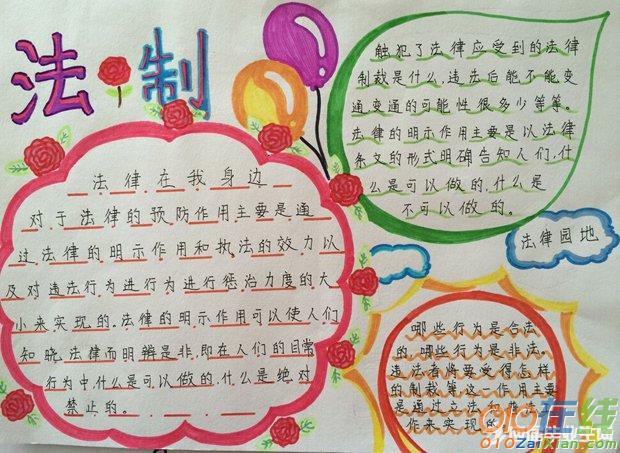 法制
法律在我身边
对于法律的预防作用主要是通
过法律的明示作用和执法的效力以
及对违法行为进行为进行惩治力度的大
小来实现的.法律的明示作用可以使人们
知晓法律而明辨是非,即在人们的日常
行为中,什么是可以做的,什么是绝对
禁止的。
触犯了法律应受到的法律
制裁是什么,违法后能不能变
通变通的可能性很多少等等。
法律的明示作用主要是以法律
条文的形式明确告知人们,什
么是可以做的,什么是
不可以做的。
法律园地
哪些行为是合法
的,哪些行为是非法。
违法者将要受得怎样
的制裁等这一作用主要
是通过立法和普法
作来实现的
010在线
010zaixian.com